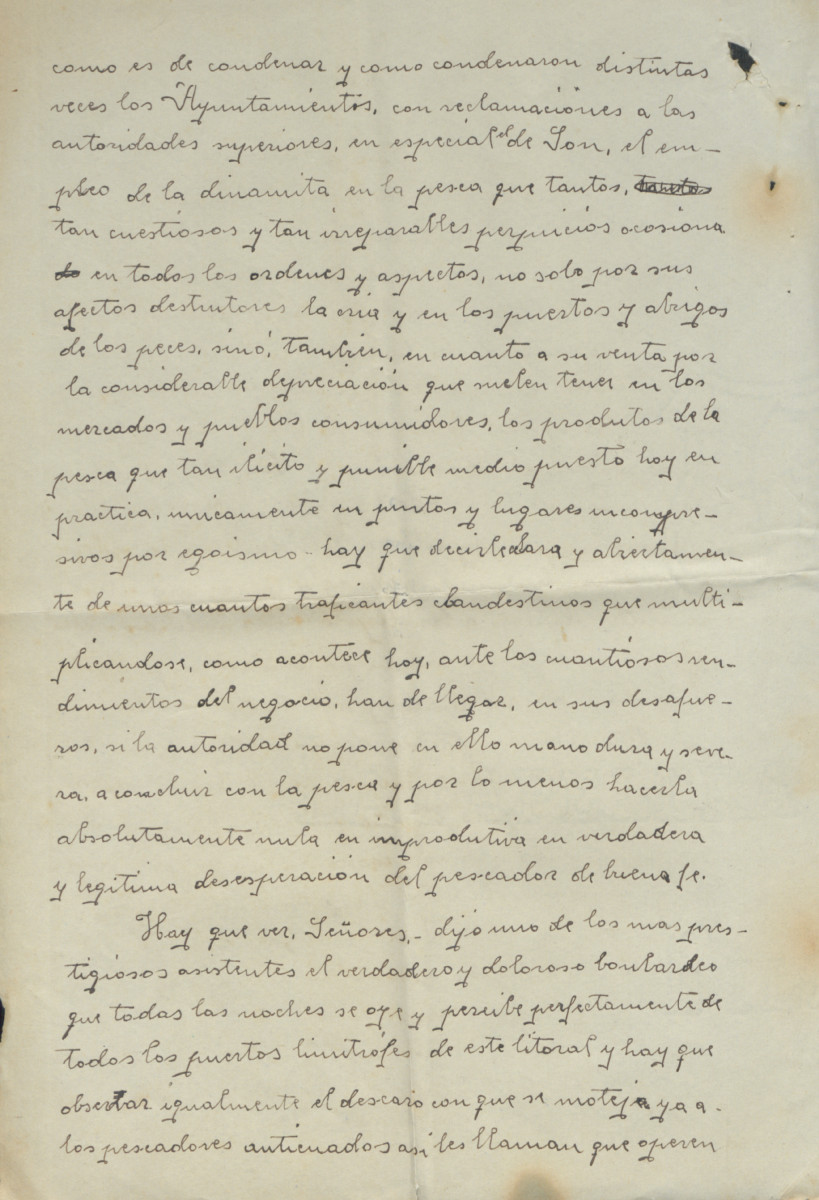 como es de condenar y como condenaron distintas
veces los Ayuntamientos, con reclamaciónes a las
autoridades superiores, en especial el de Son, el em-
pleo de la dinamita en la pesca que tantos,
tan cuestiosos y tan irreparables perpuicios ocasiona
en todos los ordenes y aspectos, no solo por sus
afectos destrutores la cria y en los puertos y abrigos
de los peces, sinó, tambien, en cuanto a su venta por
la considerable depreciación que suelen tener en los
mercados y pueblos consumidores, los produtos de la
pesca que tan ilicito y punible medio puesto hoy en
practica, unicamente en puntos y lugares incompre-
sivos por egoismo - hay que decirle clara y abiertamen-
te de unos cuantos traficantes clandestinos que multi-
plicandose, como acontece hoy, ante los cuantiósos ren-
dimientos del negocio, han de llegar, en sus desafue-
ros, si la autoridad no pone en ello mano dura y seve-
ra, a concluir con la pesca y por lo menos hacerla
absolutamente nula en improdutiva en verdadera
y legitima desesperación del pescador de buena fe.
Hay que ver, Señores, - dijo uno de los mas pres-
tigiosos asistentes el verdadero y doloroso bombardeo
que todas las noches se oye y percibe perfectamente de
todos los puertos limitrófes de este litoral y hay que
obsertar igualmente el descaro con que se moteja ya a
los pescadores anticuados asi les llaman que operen